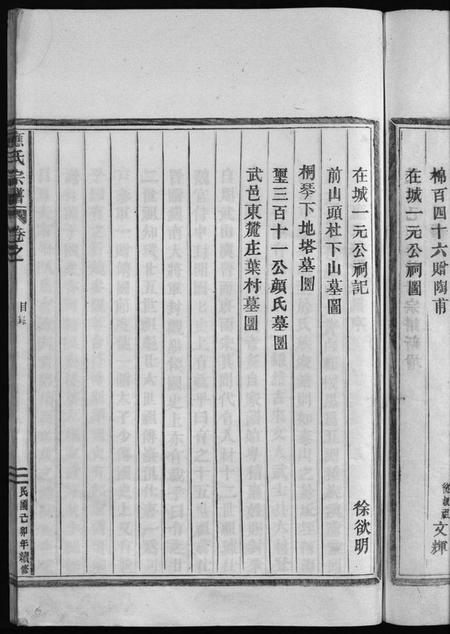 棉百四十六贈陶甫
文輝
在城一元公祠圖
在城一元公祠記
徐欲明
前山頭杜下山墓圖
桐琴下地塔墓圖
璽三百十一公顏氏墓圖
武邑東麓庄葉村墓圖
應氏宗譜
卷之一
目錄
民國己卯年續修